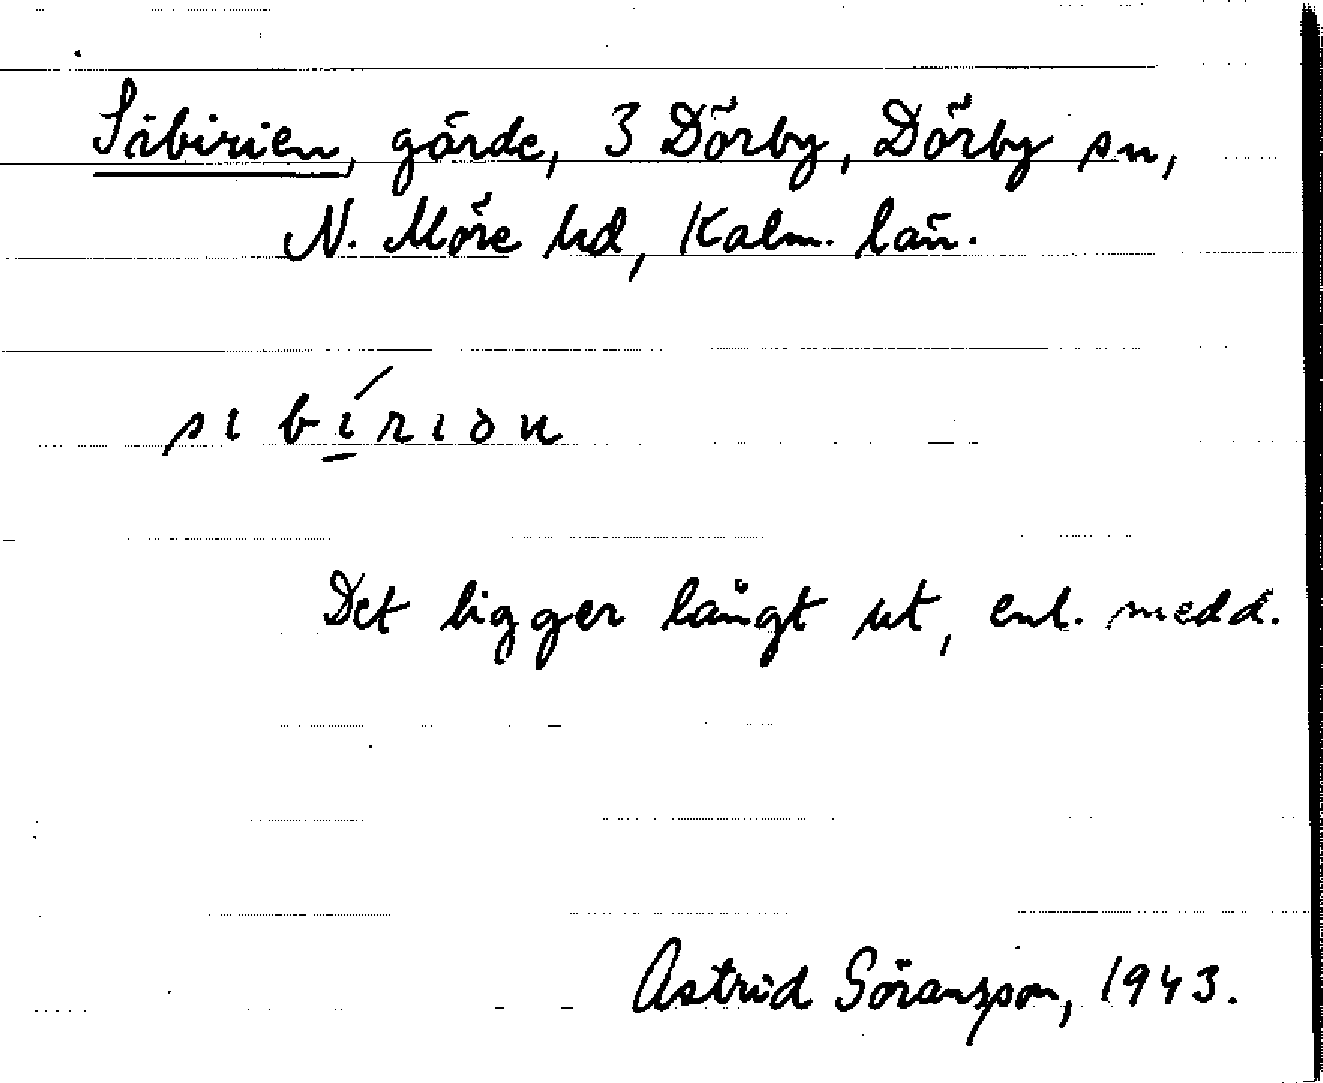 Sibirien, gärde, 3 Dörby, Dörby sn,
N. Möre hd, Kalm. län.
sibírıon
Det ligger långt ut, enl. medd.
Astrid Göransson, 1943.